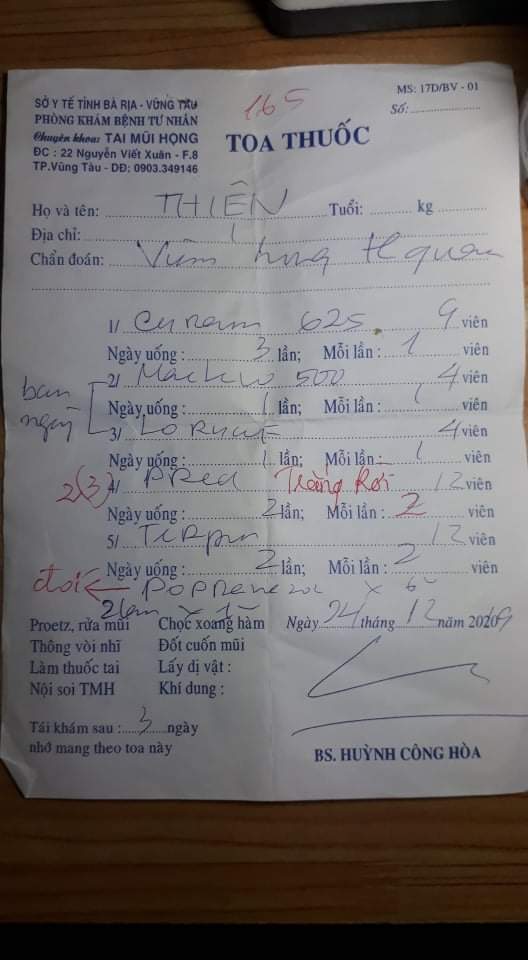 SỞ Y TẾ TỈNH BÀ RỊA - VŨNG TÀU
PHÒNG KHÁM BỆNH TƯ NHÂN
Chuyên khoa: TAI MŨI HỌNG
ĐC : 22 Nguyễn Viết Xuân - F.8
TP.Vũng Tàu - DĐ; 0903.349146
165
MS: 17D/BV - 01
Số:
TOA THUỐC
Họ và tên: THIÊN Tuổi: kg
Địa chỉ:
Chẩn đoán: Viêm họng
1/ Curam 625 9 viên
Ngày uống : 3 lần; Mỗi lần : 1 viên
2/ 500 4 viên
Ngày uống : 1 lần; Mỗi lần : 1 viên
ban ngày
3/ 4 viên
Ngày uống : 1 lần; Mỗi lần : 1 viên
2(3) 4/ PRed Trắng Rời 12 viên
Ngày uống : 2 lần; Mỗi lần : 2 viên
5/ Terpin 12 viên
Ngày uống : 2 lần; Mỗi lần : 2 viên
đói ← x 6
2 lần x 1
Proetz, rửa mũi Chọc xoang hàm
Thông vòi nhĩ Đốt cuốn mũi
Làm thuốc tai Lấy dị vật :
Nội soi TMH Khí dung :
Ngày 24 tháng 12 năm 20
Tái khám sau : 3 ngày
nhớ mang theo toa này
BS. HUỲNH CÔNG HÒA